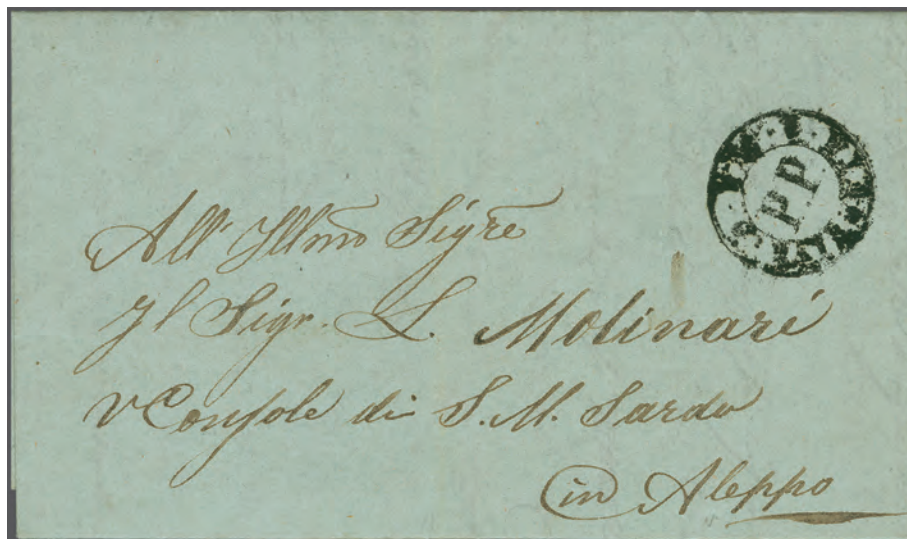 PP
All' Illmo Sigre
Il Sigr. L. Molinari
V Console di S. M. Sarda
in Aleppo